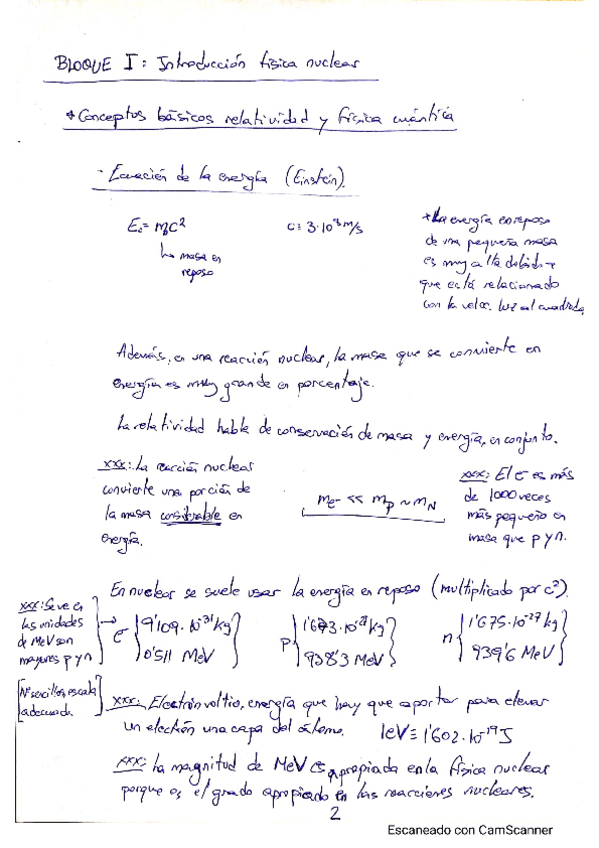 BLOQUE I: Introducción física nuclear
* Conceptos básicos relatividad y física cuántica
- Ecuación de la energía (Einstein).
E₀ = m₀c²
c = 3·10⁸ m/s
↳ masa en
reposo
* La energía en reposo
de una pequeña masa
es muy alta debido a
que está relacionado
con la veloc. luz al cuadrado
Además, en una reacción nuclear, la masa que se convierte en
energía es muy grande en porcentaje.
La relatividad habla de conservación de masa y energía, en conjunto.
xxx: La reacción nuclear
convierte una porción de
la masa considerable en
energía.
me- << mp ~ mN
xxx: El e- es más
de 1000 veces
más pequeño en
masa que p y n.
En nuclear se suele usar la energía en reposo (multiplicado por c²).
xxx: Se ve en
las unidades
de MeV son
mayores p y n
→ e- { 9'109·10⁻³¹ kg
0'511 MeV }
p { 1'673·10⁻²⁷ kg
938'3 MeV }
n { 1'675·10⁻²⁷ kg
939'6 MeV }
[Nº sencillos, escala
adecuada]
xxx: Electrónvoltio, energía que hay que aportar para elevar
un electrón una capa del átomo. 1eV ≡ 1'602·10⁻¹⁹ J
xxx: La magnitud de MeV es apropiada en la física nuclear
porque es el grado apropiado en las reacciones nucleares.
2
Escaneado con CamScanner